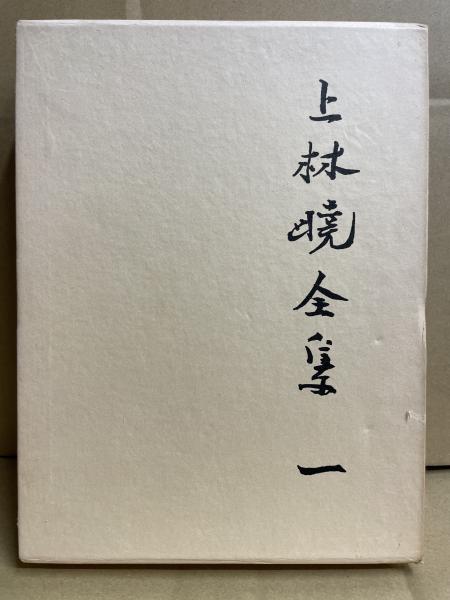 上林曉全集 一